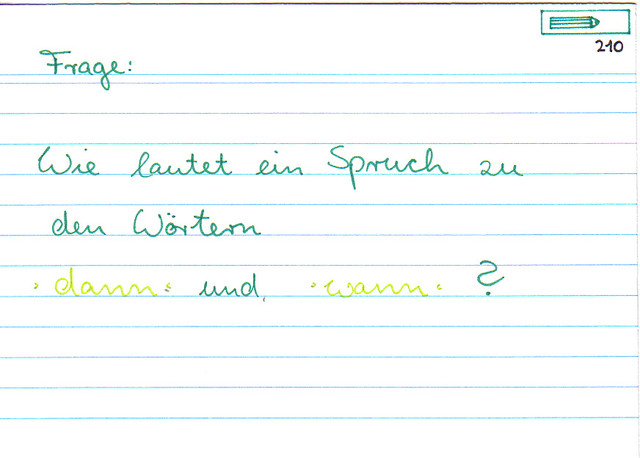 210
Frage:
Wie lautet ein Spruch zu
den Wörtern
"dann" und "wann"?